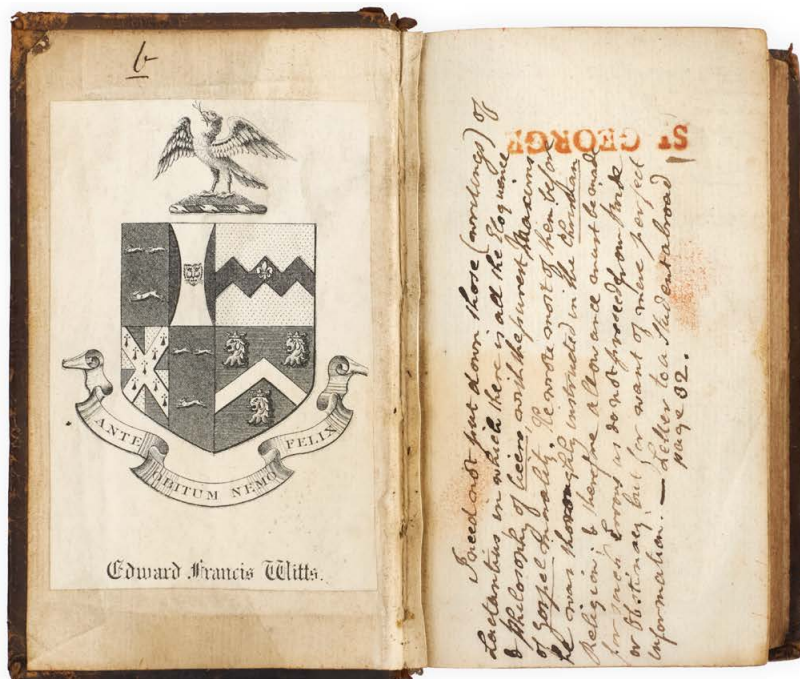 b
ANTE OBITUM NEMO FELIX
Edward Francis Witts.
ST GEORGE
I need not put down those (writings) of
Lactantius in which there is all the Eloquence
& Philosophy of Cicero, with the purest Maxims
of Gospel Morality. He wrote most of them before
he was thoroughly instructed in the Christian
Religion; & therefore allowance must be made
for such Errors as do not proceed from Pride
or Obstinacy, but for want of more perfect
information. — Letter to a Student abroad
page 32.